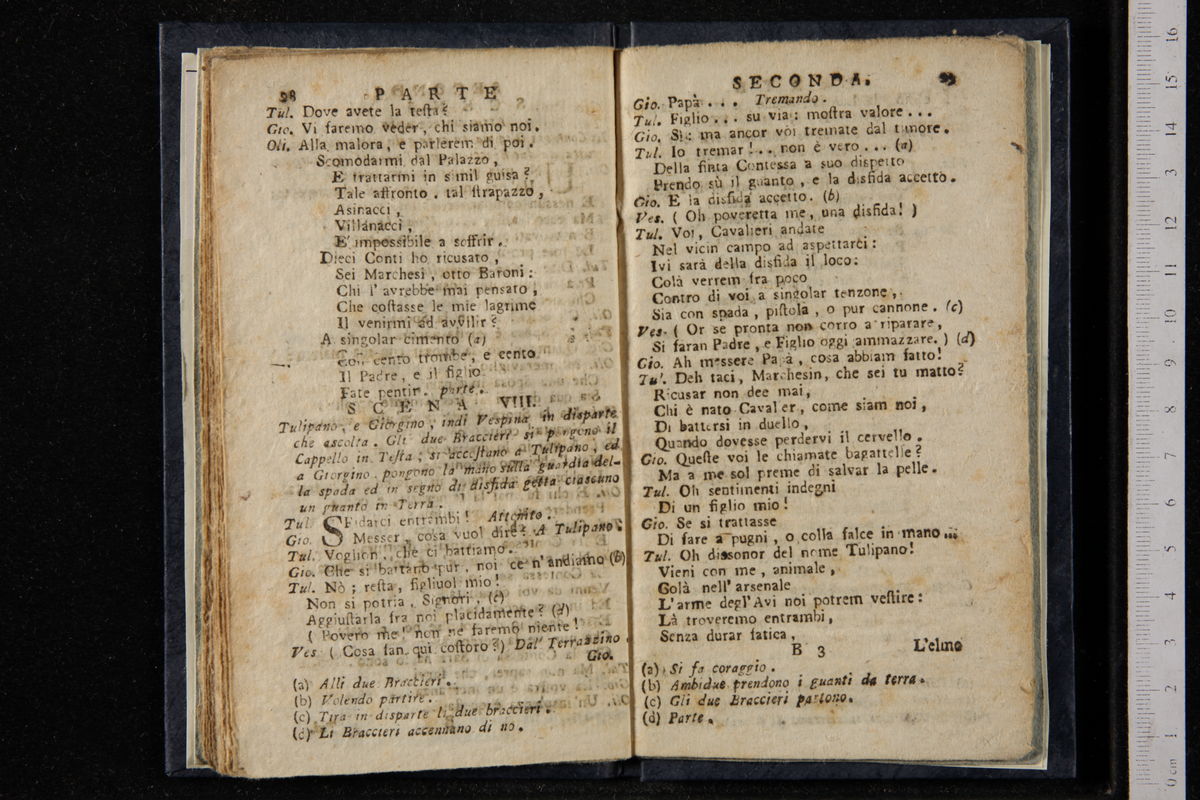 28 PARTE
Tul. Dove avete la testa?
Gio. Vi faremo veder, chi siamo noi.
Oli. Alla malora, e parlerem di poi.
Scomodarmi dal Palazzo,
E trattarmi in simil guisa?
Tale affronto, tal strapazzo,
Asinacci,
Villanacci,
E' impossibile a soffrir.
Dieci Conti ho ricusato,
Sei Marchesi, otto Baroni:
Chi l'avrebbe mai pensato,
Che costasse le mie lagrime
Il venirmi ad avvilir?
A singolar cimento (a)
Con cento trombe, e cento
Il Padre, e il figlio
Fate pentir. parte.
SCENA VIII.
Tulipano, e Giorgino, indi Vespina in disparte
che ascolta. Gli due Braccieri si pongono il
Cappello in Testa; si accostano a Tulipano, ed
a Giorgino, pongono la mano sulla guardia del-
la spada ed in segno di disfida getta ciascuno
un guanto in Terra.
Tul. SFidarci entrambi! Attonito.
Gio. Messer, cosa vuol dire? A Tulipano.
Tul. Voglion, che ci battiamo.
Gio. Che si battano pur, noi ce n'andiamo (b)
Tul. Nò; resta, figliuol mio!
Non si potria, Signori, (c)
Aggiustarla fra noi placidamente? (d)
(Povero me! non ne faremo niente!
Ves. (Cosa fan qui costoro?) Dal Terrazzino.
Gio.
(a) Alli due Braccieri.
(b) Volendo partire.
(c) Tira in disparte li due braccieri.
(d) Li Braccieri accennano di no.
SECONDA.
Gio. Papà... Tremando.
Tul. Figlio... su via: mostra valore...
Gio. Sì: ma ancor voi tremate dal timore.
Tul. Io tremar!.. non è vero... (a)
Della finta Contessa a suo dispetto
Prendo sù il guanto, e la disfida accetto.
Gio. E la disfida accetto. (b)
Ves. (Oh poveretta me, una disfida!)
Tul. Voi, Cavalieri andate
Nel vicin campo ad aspettarci:
Ivi sarà della disfida il loco:
Colà verrem fra poco
Contro di voi a singolar tenzone,
Sia con spada, pistola, o pur cannone. (c)
Ves. (Or se pronta non corro a riparare,
Si faran Padre, e Figlio oggi ammazzare.) (d)
Gio. Ah messere Papà, cosa abbiam fatto!
Tul. Deh taci, Marchesin, che sei tu matto?
Ricusar non dee mai,
Chi è nato Cavalier, come siam noi,
Di battersi in duello,
Quando dovesse perdervi il cervello.
Gio. Queste voi le chiamate bagattelle?
Ma a me sol preme di salvar la pelle.
Tul. Oh sentimenti indegni
Di un figlio mio!
Gio. Se si trattasse
Di fare a pugni, o colla falce in mano...
Tul. Oh dissonor del nome Tulipano!
Vieni con me, animale,
Colà nell'arsenale
L'arme degl'Avi noi potrem vestire:
Là troveremo entrambi,
Senza durar fatica,
B 3 L'elmo
(a) Si fa coraggio.
(b) Ambidue prendono i guanti da terra.
(c) Gli due Braccieri partono.
(d) Parte.